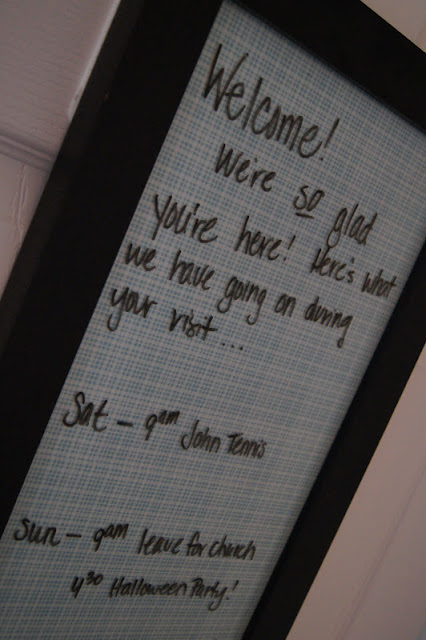 Welcome!
We're so glad
you're here! Here's what
we have going on during
your visit...
Sat - 9am John Tennis
Sun - 9am leave for church
4:30 Halloween Party!